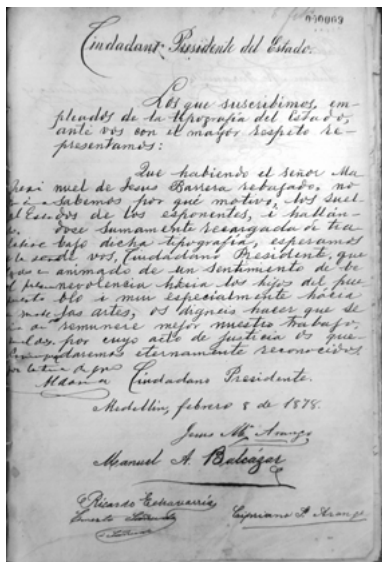 000009
Ciudadano Presidente del Estado.
Los que suscribimos, em-
pleados de la tipografía del Estado,
ante vos con el mayor respeto re-
presentamos:
Que habiendo el señor Ma-
nuel de Jesus Barrera rebajado, no
sabemos por qué motivo, los suel-
dos de los esponentes, i hallán-
dose sumamente recargada de tra-
bajo dicha tipografía, esperamos
de vos, Ciudadano Presidente, que
animado de un sentimiento de be-
nevolencia hácia los hijos del pue-
blo i mui especialmente hácia
las artes, os digneis hacer que se
remunere mejor nuestro trabajo,
por cuyo acto de justicia os que-
daremos eternamente reconocidos.
Ciudadano Presidente.
Medellin, febrero 8 de 1878.
Jesus Ma. Arango
Manuel A. Balcázar
Ricardo Echavarría
Ernesto
Cipriano P. Arango